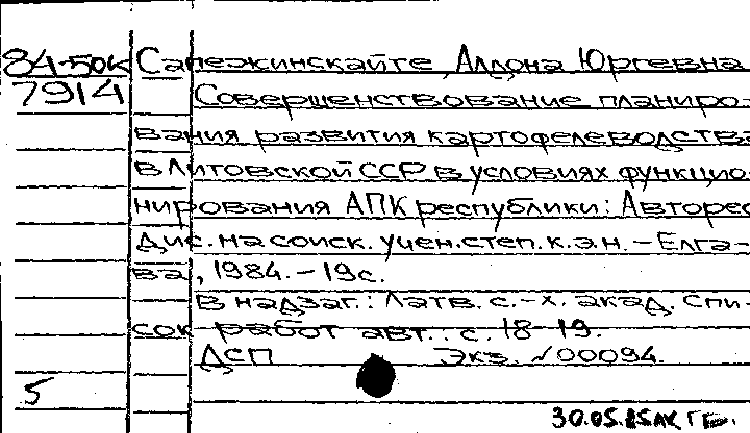 84-50к Сапежинскайте, Алдона Юргевна
7914 Совершенствование планиро-
вания развития картофелеводства
в Литовской ССР в условиях функцио-
нирования АПК республики: Автореф.
дис. на соиск. учен. степ. к.э.н. - Елга-
ва, 1984. - 19с.
В надзаг.: Латв. с.-х. акад. Спи-
сок работ авт.: с. 18-19.
ДСП Экз. №00094.
5
30.05.85